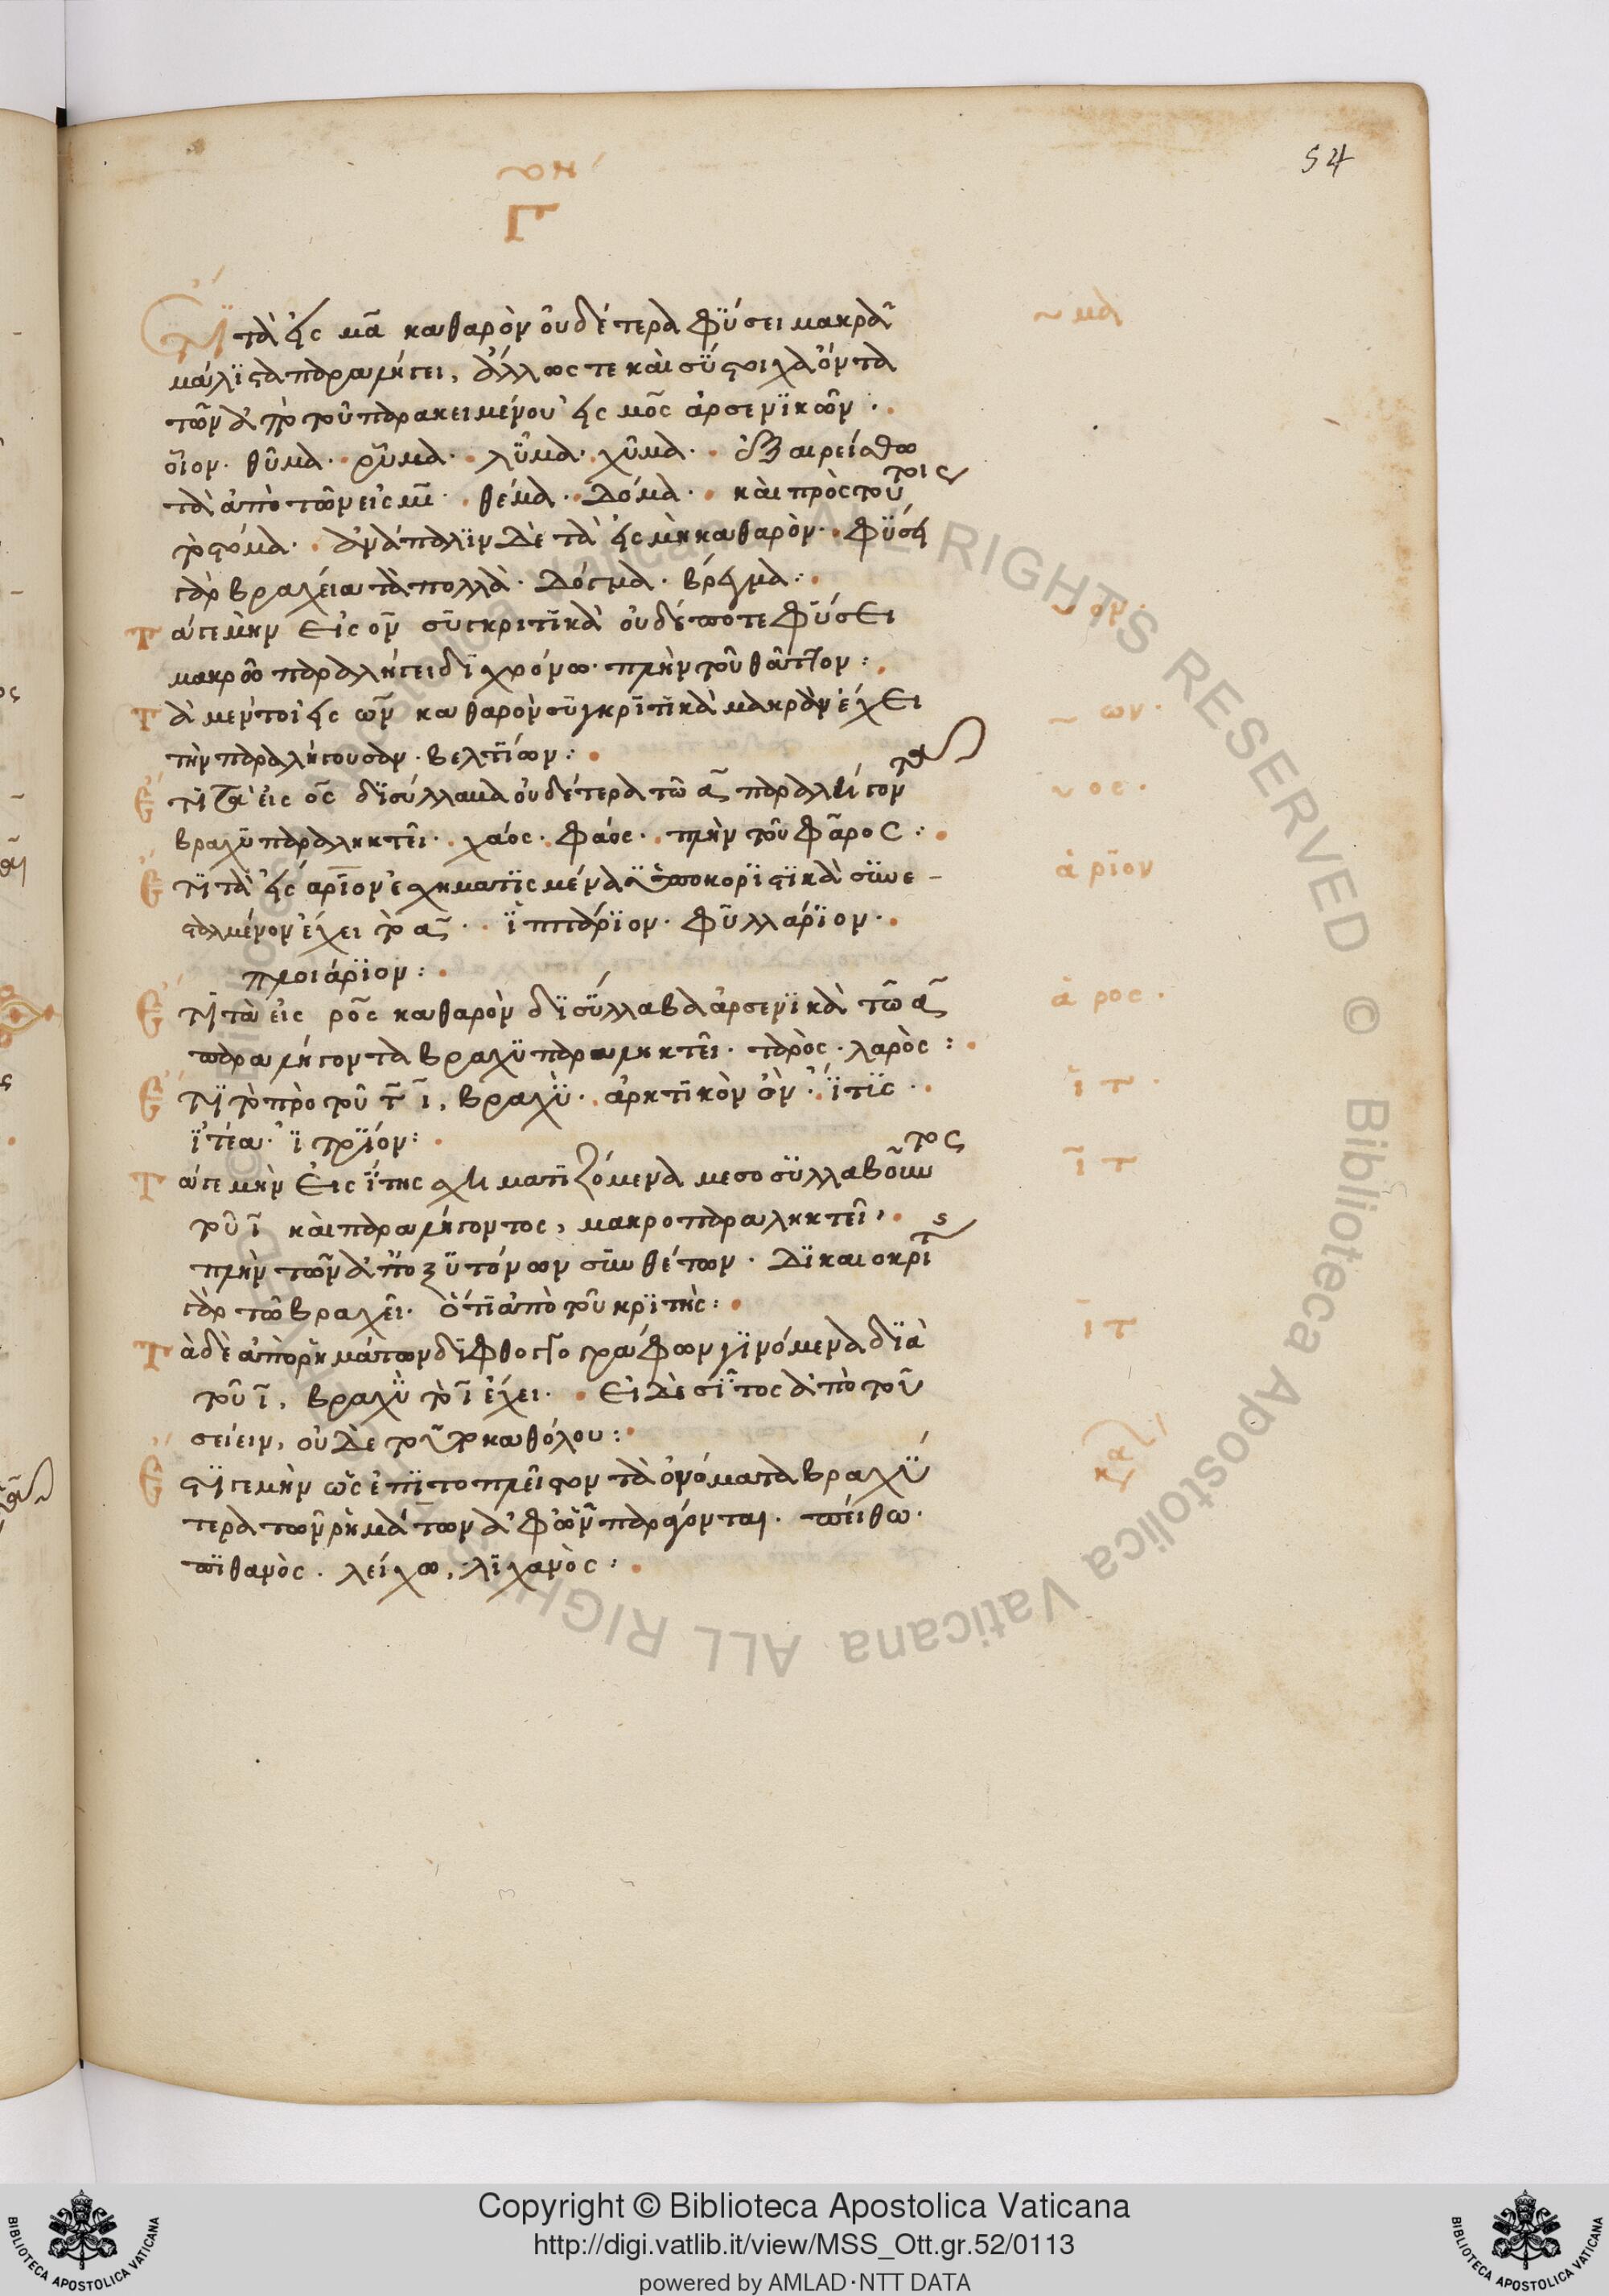 54
Γ
Ἔτι τὰ εἰς μα καθαρὸν οὐδέτερα φύσει μακρᾶ
μάλιστα παραλήγει, ἄλλως τε καὶ σύστοιχα ὄντα
τῶν ἀπὸ τοῦ παρακειμένου εἰς μος ἀρσενικῶν.
οἷον. θῦμα. ῥῦμα. λῦμα. χῦμα. ἐξαιρείσθω
τὰ ἀπὸ τῶν εἰς μι. θέμα. δόμα. καὶ πρὸς τούτοις
τὸ στόμα. ἀνάπαλιν δὲ τὰ εἰς μὴ καθαρὸν. φύσει
γὰρ βραχέια τὰ πολλὰ. δόγμα. βρέγμα:
Τά γε μὴν εἰς ον συγκριτικὰ οὐδέποτε φύσει
μακρῶ παραλήγει διχρόνω. πλὴν τοῦ θᾶττον:
Τὰ μέντοι εἰς ων καθαρὸν συγκριτικὰ μακρὰν ἔχει
τὴν παραλήγουσαν. βελτίων:
Ἔτι τὰ εἰς ος δισύλλαβα οὐδέτερα τῶ α παραλήγοντα
βραχυπαραληκτεῖ. χάος. φάος. πλὴν τοῦ φᾶρος:
Ἔτι τὰ εἰς αριον ἐσχηματισμένα ὑποκοριστικὰ συνε-
σταλμένον ἔχει τὸ α. ἱππάριον. φυλλάριον.
πλοιάριον:
Ἔτι τὰ εἰς ρος καθαρὸν δισύλλαβα ἀρσενικὰ τῶ α
παραλήγοντα βραχυπαραληκτεῖ. ταρὸς. λαρὸς:
Ἔτι τὸ πρὸ τοῦ τ ι, βραχὺ. ἀρκτικὸν ὂν. ἴτις.
ἰτέα. ἰτρίον:
Τά γε μὴν εἰς ίτης σχηματιζόμενα μεσοσυλλαβοῦντος
τοῦ ι καὶ παραλήγοντος, μακροπαραληκτεῖ,
πλὴν τῶν ἀπὸ ξυτόνων συνθέτων. δικαιοκρίτης
γὰρ τῶ βραχεῖ. ὅτι ἀπὸ τοῦ κριτὴς:
Τὰ δὲ ἀπὸ ῥημάτων διφθογγογράφων γινόμενα διὰ
τοῦ ι, βραχὺ τὸ ι ἔχει. εἰ δὲ σῖτος ἀπὸ τοῦ
σείειν, οὐ δε τοῦτο καθόλου:
Ἔστι γε μὴν ὡς ἐπιτοπλεῖστον τὰ ὀνόματα βραχύ
τερα τῶν ῥημάτων ἀφ ὧν παράγονται. πείθω.
πιθανὸς. λείχω, λιχανὸς:
μα
ον.
ων.
ος.
άριον
άρος.
ι τ.
ι τ
ι τ
Copyright © Biblioteca Apostolica Vaticana
http://digi.vatlib.it/view/MSS_Ott.gr.52/0113
powered by AMLAD·NTT DATA
BIBLIOTECA APOSTOLICA VATICANA
BIBLIOTECA APOSTOLICA VATICANA
© Biblioteca Apostolica Vaticana ALL RIGHTS RESERVED